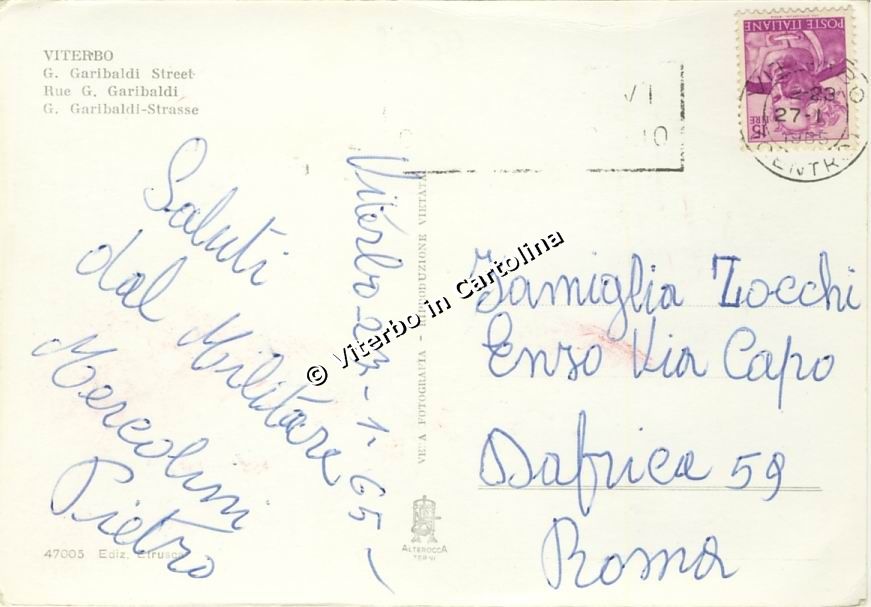 VITERBO
G. Garibaldi Street
Rue G. Garibaldi
G. Garibaldi-Strasse
Saluti
dal Militare
Mercolini
Pietro
Viterbo-27-1-65-
47005 Ediz. Etrusca
VERA FOTOGRAFIA - RIPRODUZIONE VIETATA
ALTEROCCA
TERNI
POSTE ITALIANE
15 LIRE
27-1
1965
CENTRO
VI
10
Famiglia Zocchi
Enzo Via Capo
Dafrica 59
Roma
© Viterbo in Cartolina